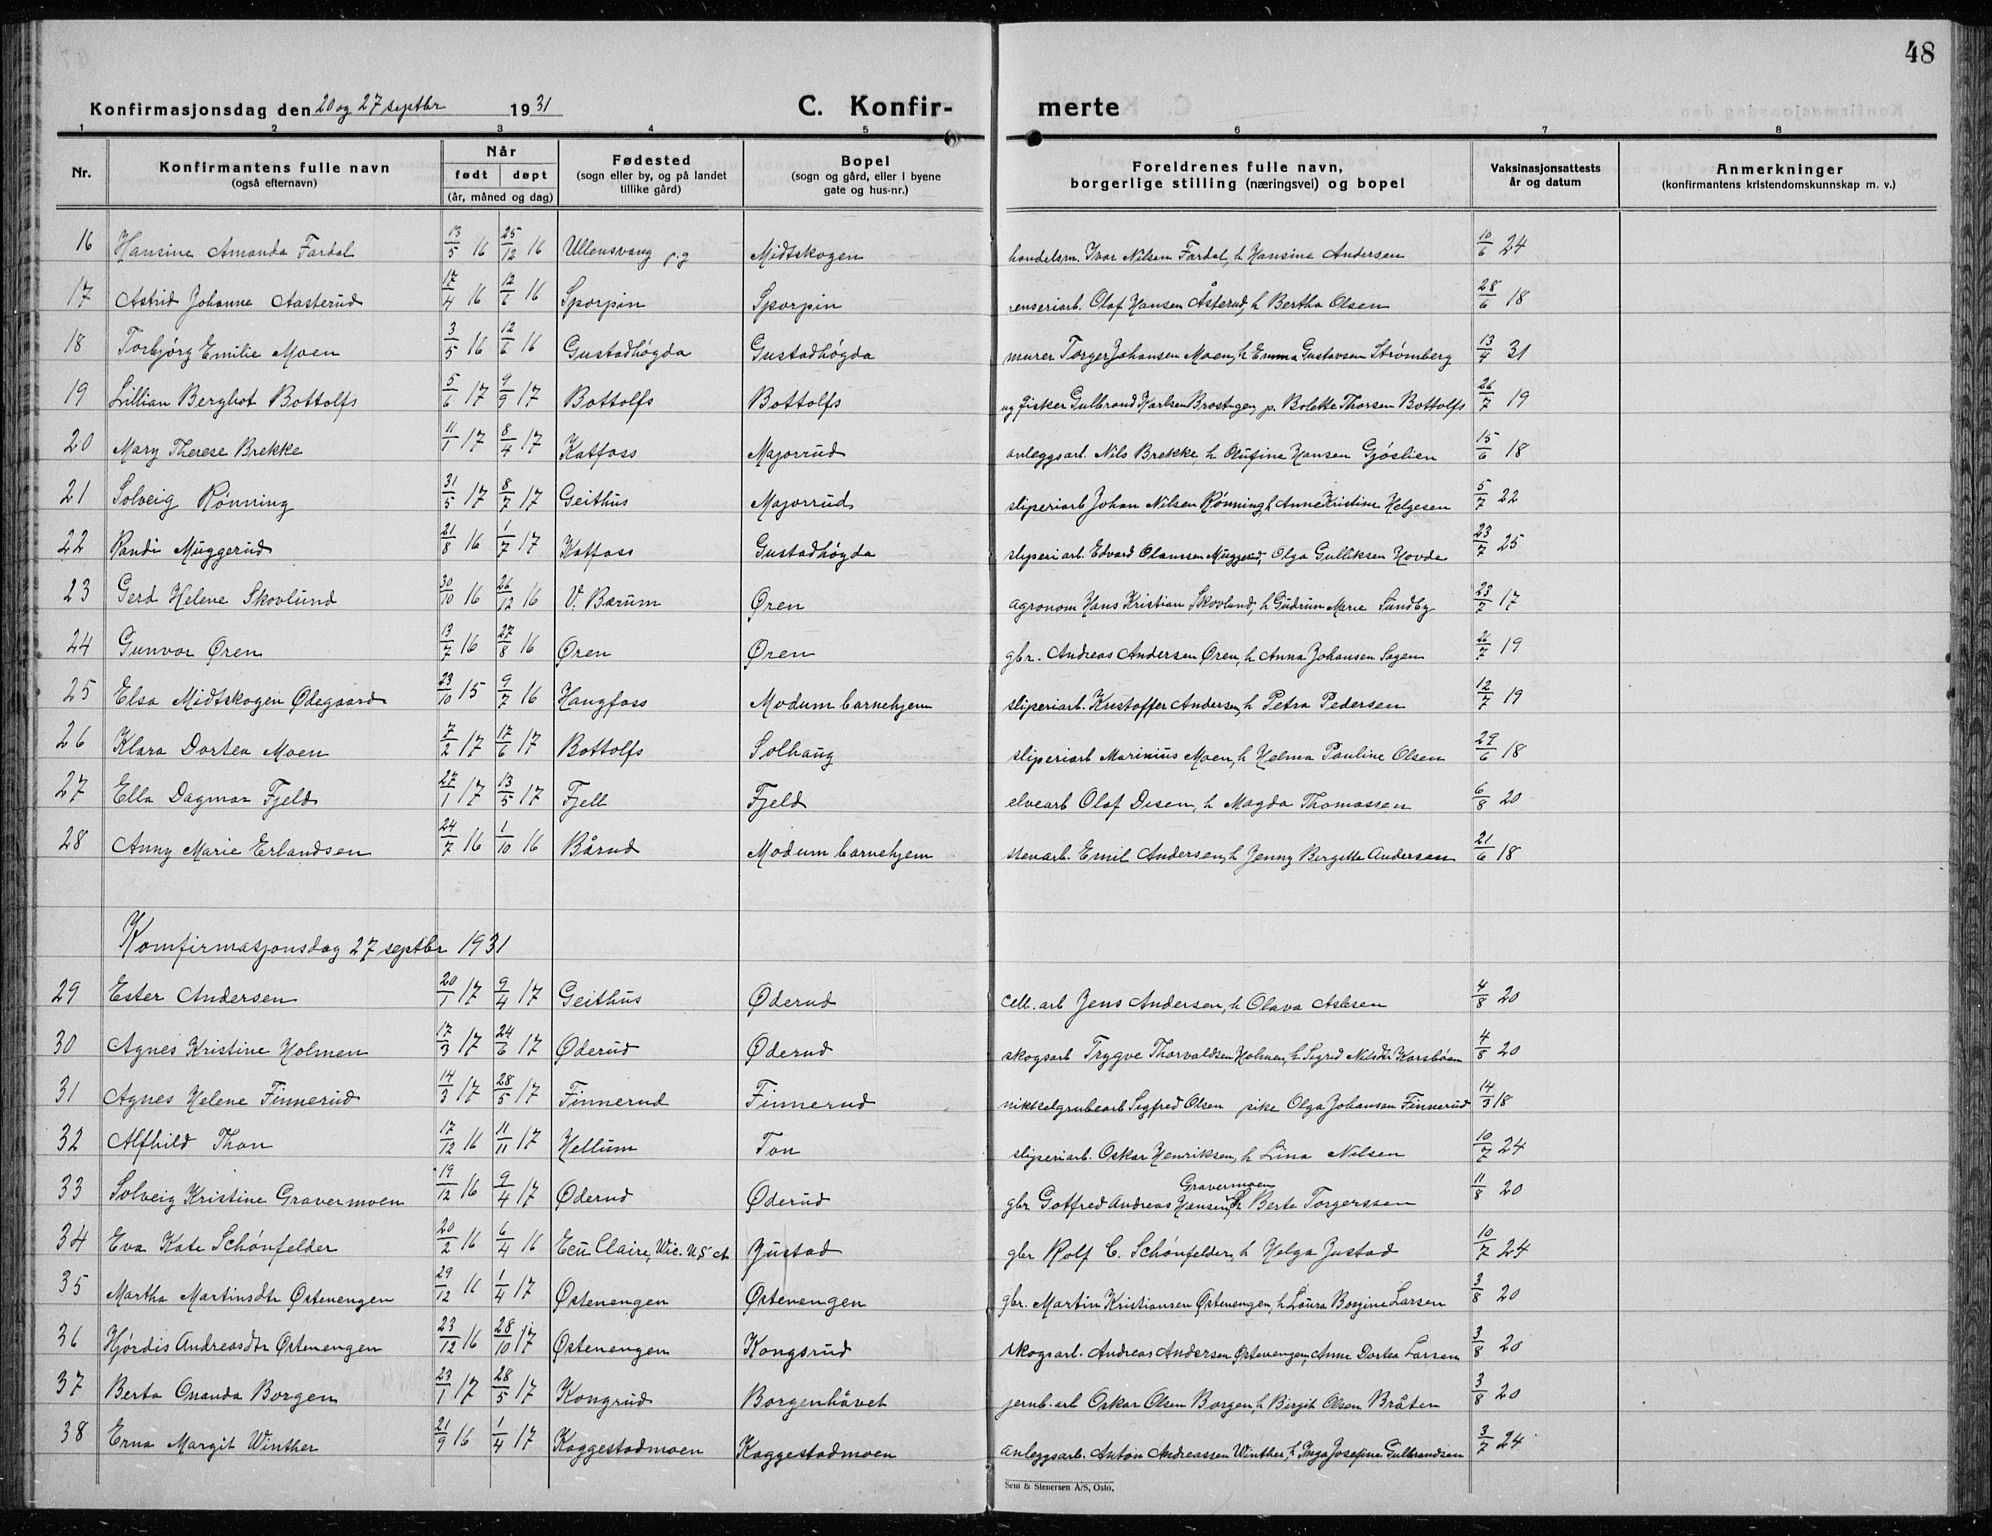 48
Konfirmasjonsdag den 20 og 27 septbr 1931
C. Konfir-
merte
1 2 3 4 5 6 7 8
Nr. | Konfirmantens fulle navn (også efternavn) | Når født døpt (år, måned og dag) | Fødested (sogn eller by, og på landet tillike gård) | Bopel (sogn og gård, eller i byene gate og hus-nr.) | Foreldrenes fulle navn, borgerlige stilling (næringsvei) og bopel | Vaksinasjonsattests år og datum | Anmerkninger (konfirmantens kristendomskunnskap m. v.)
16 Hansine Amanda Fardal 13/5 16 25/12 16 Ullensvang p.g Midtskogen handelsm. Ivar Nilsen Fardal, h Hansine Andersen 10/6 24
17 Astrid Johanne Aasterud 17/4 16 12/6 16 Sporpin Sporpin renseriarb. Olaf Hansen Åsterud, h Bertha Olsen 28/6 18
18 Torbjørg Emilie Moen 3/5 16 12/6 16 Gustadhøgda Gustadhøgda murer Torger Johansen Moen, h Emma Gustavsen Strømberg 13/4 31
19 Lillian Berghot Bottolfs 5/6 17 9/9 17 Bottolfs Bottolfs ug fisker Gulbrand Karlsen Brostigen, p. Bolette Thorsen Bottolfs 26/7 19
20 Mary Therese Brekke 11/1 17 8/4 17 Katfoss Majorrud anleggsarb. Nils Brekke, h Olufine Hansen Gjøslien 15/6 18
21 Solveig Rønning 31/5 17 8/7 17 Geithus Majorrud sliperiarb Johan Nilsen Rønning, h Anne Kristine Helgesen 5/7 22
22 Randi Muggerud 21/8 16 1/7 17 Katfoss Gustadhøgda sliperiarb. Edvard Olaussen Muggerud, Olga Gulliksen Hovde 23/7 25
23 Gerd Helene Skovlund 30/10 16 26/12 16 V. Bærum Øren agronom Hans Kristian Skovlund, h Gudrun Marie Sundby 23/7 17
24 Gunvor Øren 13/7 16 27/8 16 Øren Øren gbr. Andreas Andersen Øren, h Anna Johansen Sagen 26/7 19
25 Elsa Midtskogen Ødegaard 23/10 15 9/7 16 Haugfoss Modum barnehjem sliperiarb. Kristoffer Andersen, h Petra Pedersen 12/7 19
26 Klara Dortea Moen 7/2 17 17/6 17 Bottolfs Solhaug sliperiarb Marinius Moen, h Helma Pauline Olsen 29/6 18
27 Ella Dagmar Fjeld 27/1 17 13/5 17 Fjell Fjeld elvearb Olaf Disen, h Magda Thomassen 6/8 20
28 Anny Marie Erlandsen 24/7 16 1/10 16 Bårud Modum barnehjem stenarb. Emil Andersen, h Jenny Bergitte Andersen 21/6 18
Komfirmasjonsdag 27 septbr 1931
29 Ester Andersen 20/1 17 9/4 17 Geithus Øderud cell. arb Jens Andersen, h Olava Aslesen 4/8 20
30 Agnes Kristine Holmen 17/3 17 24/6 17 Øderud Øderud skogsarb Trygve Thorvaldsen Holmen, h Sigrid Nilsdtr Korsbøen 4/8 20
31 Agnes Helene Finnerud 14/3 17 28/5 17 Finnerud Finnerud nikkelgrubearb Sigfred Olsen pike Olga Johansen Finnerud 14/3 18
32 Alfhild Thon 17/12 16 11/11 17 Hellum Ton sliperiarb. Oskar Henriksen, h Lina Nilsen 10/7 24
33 Solveig Kristine Gravermoen 19/12 16 9/4 17 Øderud Øderud gbr Gotfred Andreas Hansen Gravermoen, h Berte Torgerssen 11/8 20
34 Eva Kate Schönfelder 20/2 16 6/4 16 Ecu Claire, Wic. U S A Justad gbr Rolf C. Schönfelder, h Helga Justad 10/7 24
35 Martha Martinsdtr Østenengen 29/12 16 1/4 17 Østenengen Østenengen gbr. Martin Kristiansen Østenengen, h Laura Borgine Larsen 3/8 20
36 Hjørdis Andreasdtr Østenengen 23/12 16 28/10 17 Østenengen Kongsrud skogsarb. Andreas Andersen Østenengen, Anne Dortea Larsen 3/8 20
37 Berta Onanda Borgen 23/1 17 28/5 17 Kongrud Borgenhåvet jernb. arb Oskar Olsen Borgen, h Birgit Olsen Bråten 3/8 20
38 Erna Margit Winther 21/9 16 1/4 17 Kaggestadmoen Kaggestadmoen anleggsarb. Anton Andreassen Winther, h Inga Josefine Gulbrandsen 3/7 24
Sem & Stenersen A/S, Oslo.